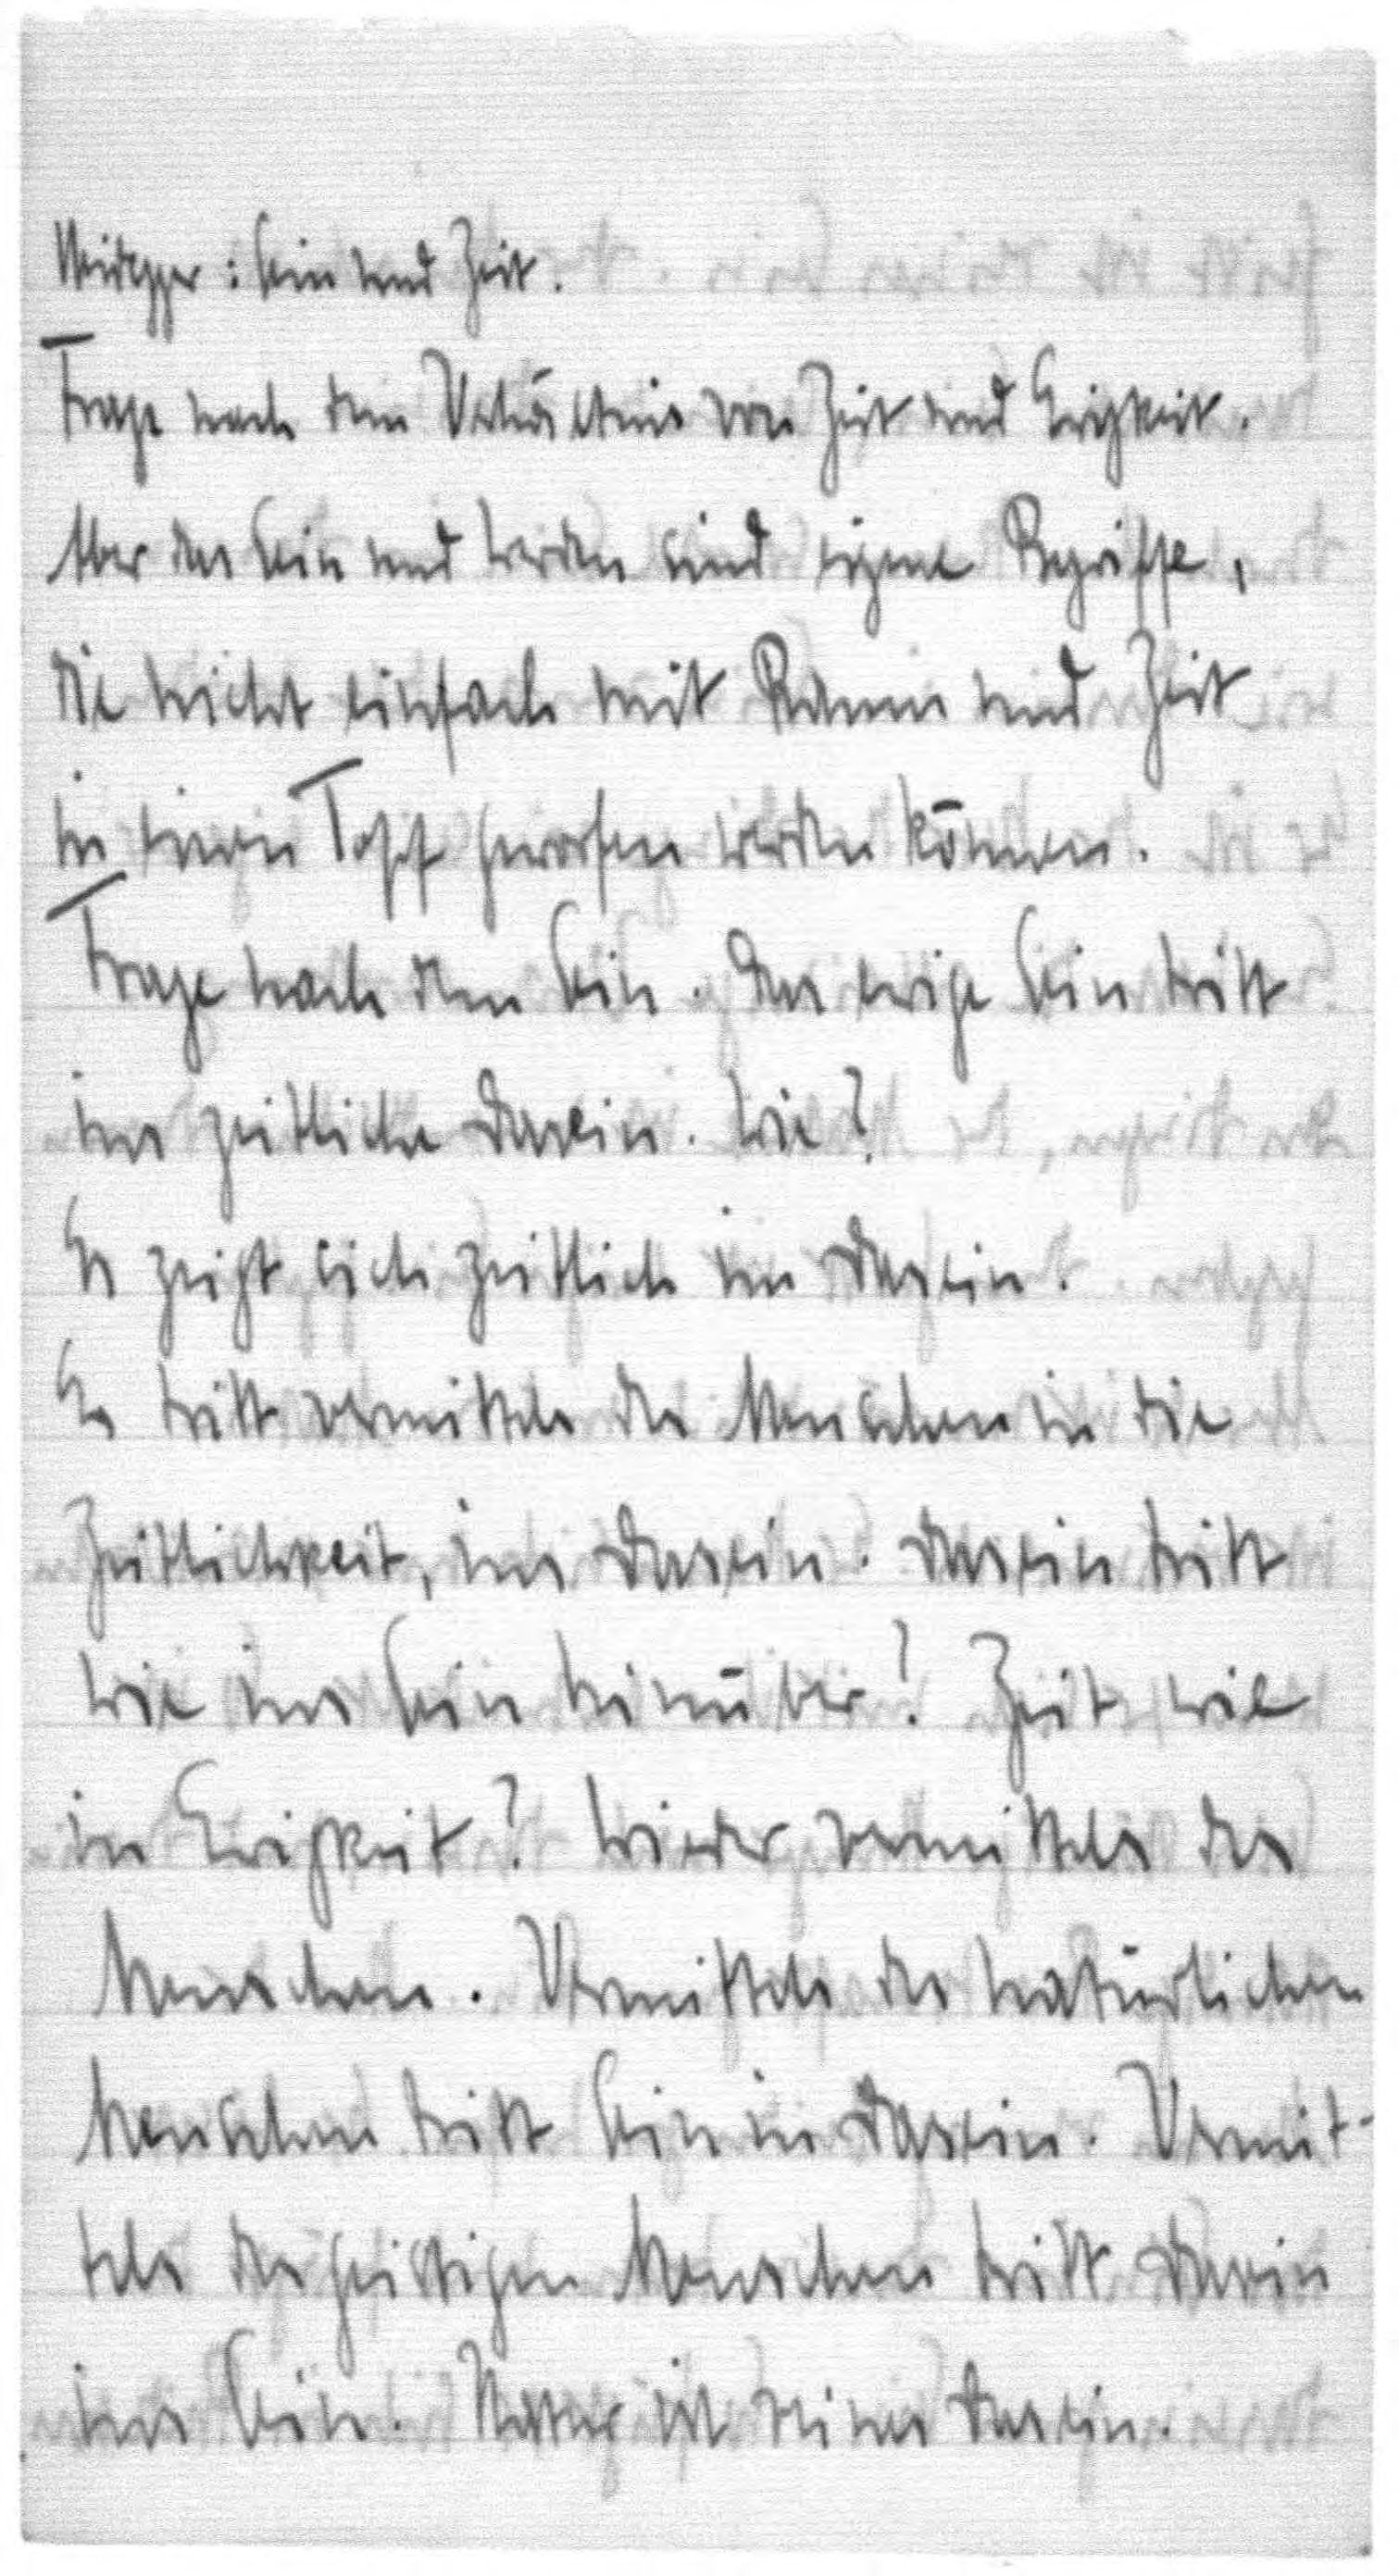 Heidegger: Sein und Zeit.
Frage nach dem Verhältnis von Zeit und Ewigkeit.
Aber das Sein und Werden sind eigene Begriffe,
die nicht einfach mit Raum und Zeit
in einen Topf geworfen werden können.
Frage nach dem Sein. Das ewige Sein tritt
ins zeitliche Dasein. Wie?
Es zeigt sich zeitlich im Dasein.
Es tritt vermittels des Menschen in die
Zeitlichkeit, ins Dasein. Dasein tritt
wie ins Sein hinüber? Zeit wie
in Ewigkeit? Wieder vermittels des
Menschen. Vermittels des natürlichen
Menschen tritt Sein in Dasein. Vermit-
tels des geistigen Menschen tritt Dasein
ins Sein. Natur ist reines Dasein.